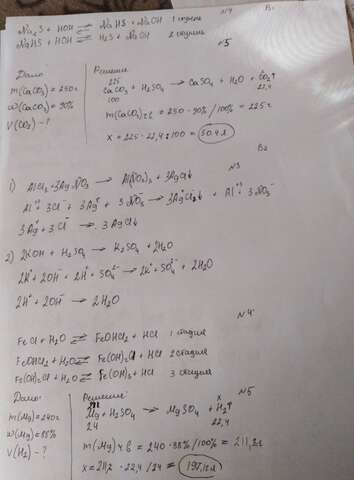 Na₂S + HOH ⇌ NaHS + NaOH 1 ступень
NaHS + HOH ⇌ H₂S + NaOH 2 ступень
№4 В1
№5
Дано
m(CaCO₃) = 250г
ω(CaCO₃) = 90%
V(CO₂) - ?
Решение
225 x
CaCO₃ + H₂SO₄ → CaSO₄ + H₂O + CO₂↑
100 22,4
m(CaCO₃) ч.в = 250 · 90% / 100% = 225 г
x = 225 · 22,4 : 100 = 50,4 л
В2
№3
1) AlCl₃ + 3AgNO₃ → Al(NO₃)₃ + 3AgCl↓
3Ag⁺ + 3Cl⁻ → 3AgCl↓
2) 2KOH + H₂SO₄ → K₂SO₄ + 2H₂O
2K⁺ + 2OH⁻ + 2H⁺ + SO₄²⁻ → 2K⁺ + SO₄²⁻ + 2H₂O
2H⁺ + 2OH⁻ → 2H₂O
№4
FeCl + H₂O ⇌ FeOHCl₂ + HCl 1 стадия
FeOHCl₂ + H₂O ⇌ Fe(OH)₂Cl + HCl 2 стадия
Fe(OH)₂Cl + H₂O ⇌ Fe(OH)₃ + HCl 3 стадия
№5
Дано:
m(Mg) = 240г
V(H₂) - ?
Решение:
x
Mg + H₂SO₄ → MgSO₄ + H₂↑
24 22,4
m(Mg) ч.в = 240 · 88% / 100% = 211,2г
x = 211,2 · 22,4 / 24 = 197,12л